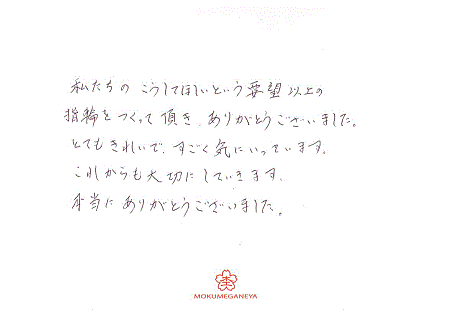 私たちの こうしてほしいという要望以上の
指輪をつくって頂き、ありがとうございました。
とてもきれいで、すごく気にいっています。
これからも大切にしていきます。
本当にありがとうございました。
MOKUMEGANEYA